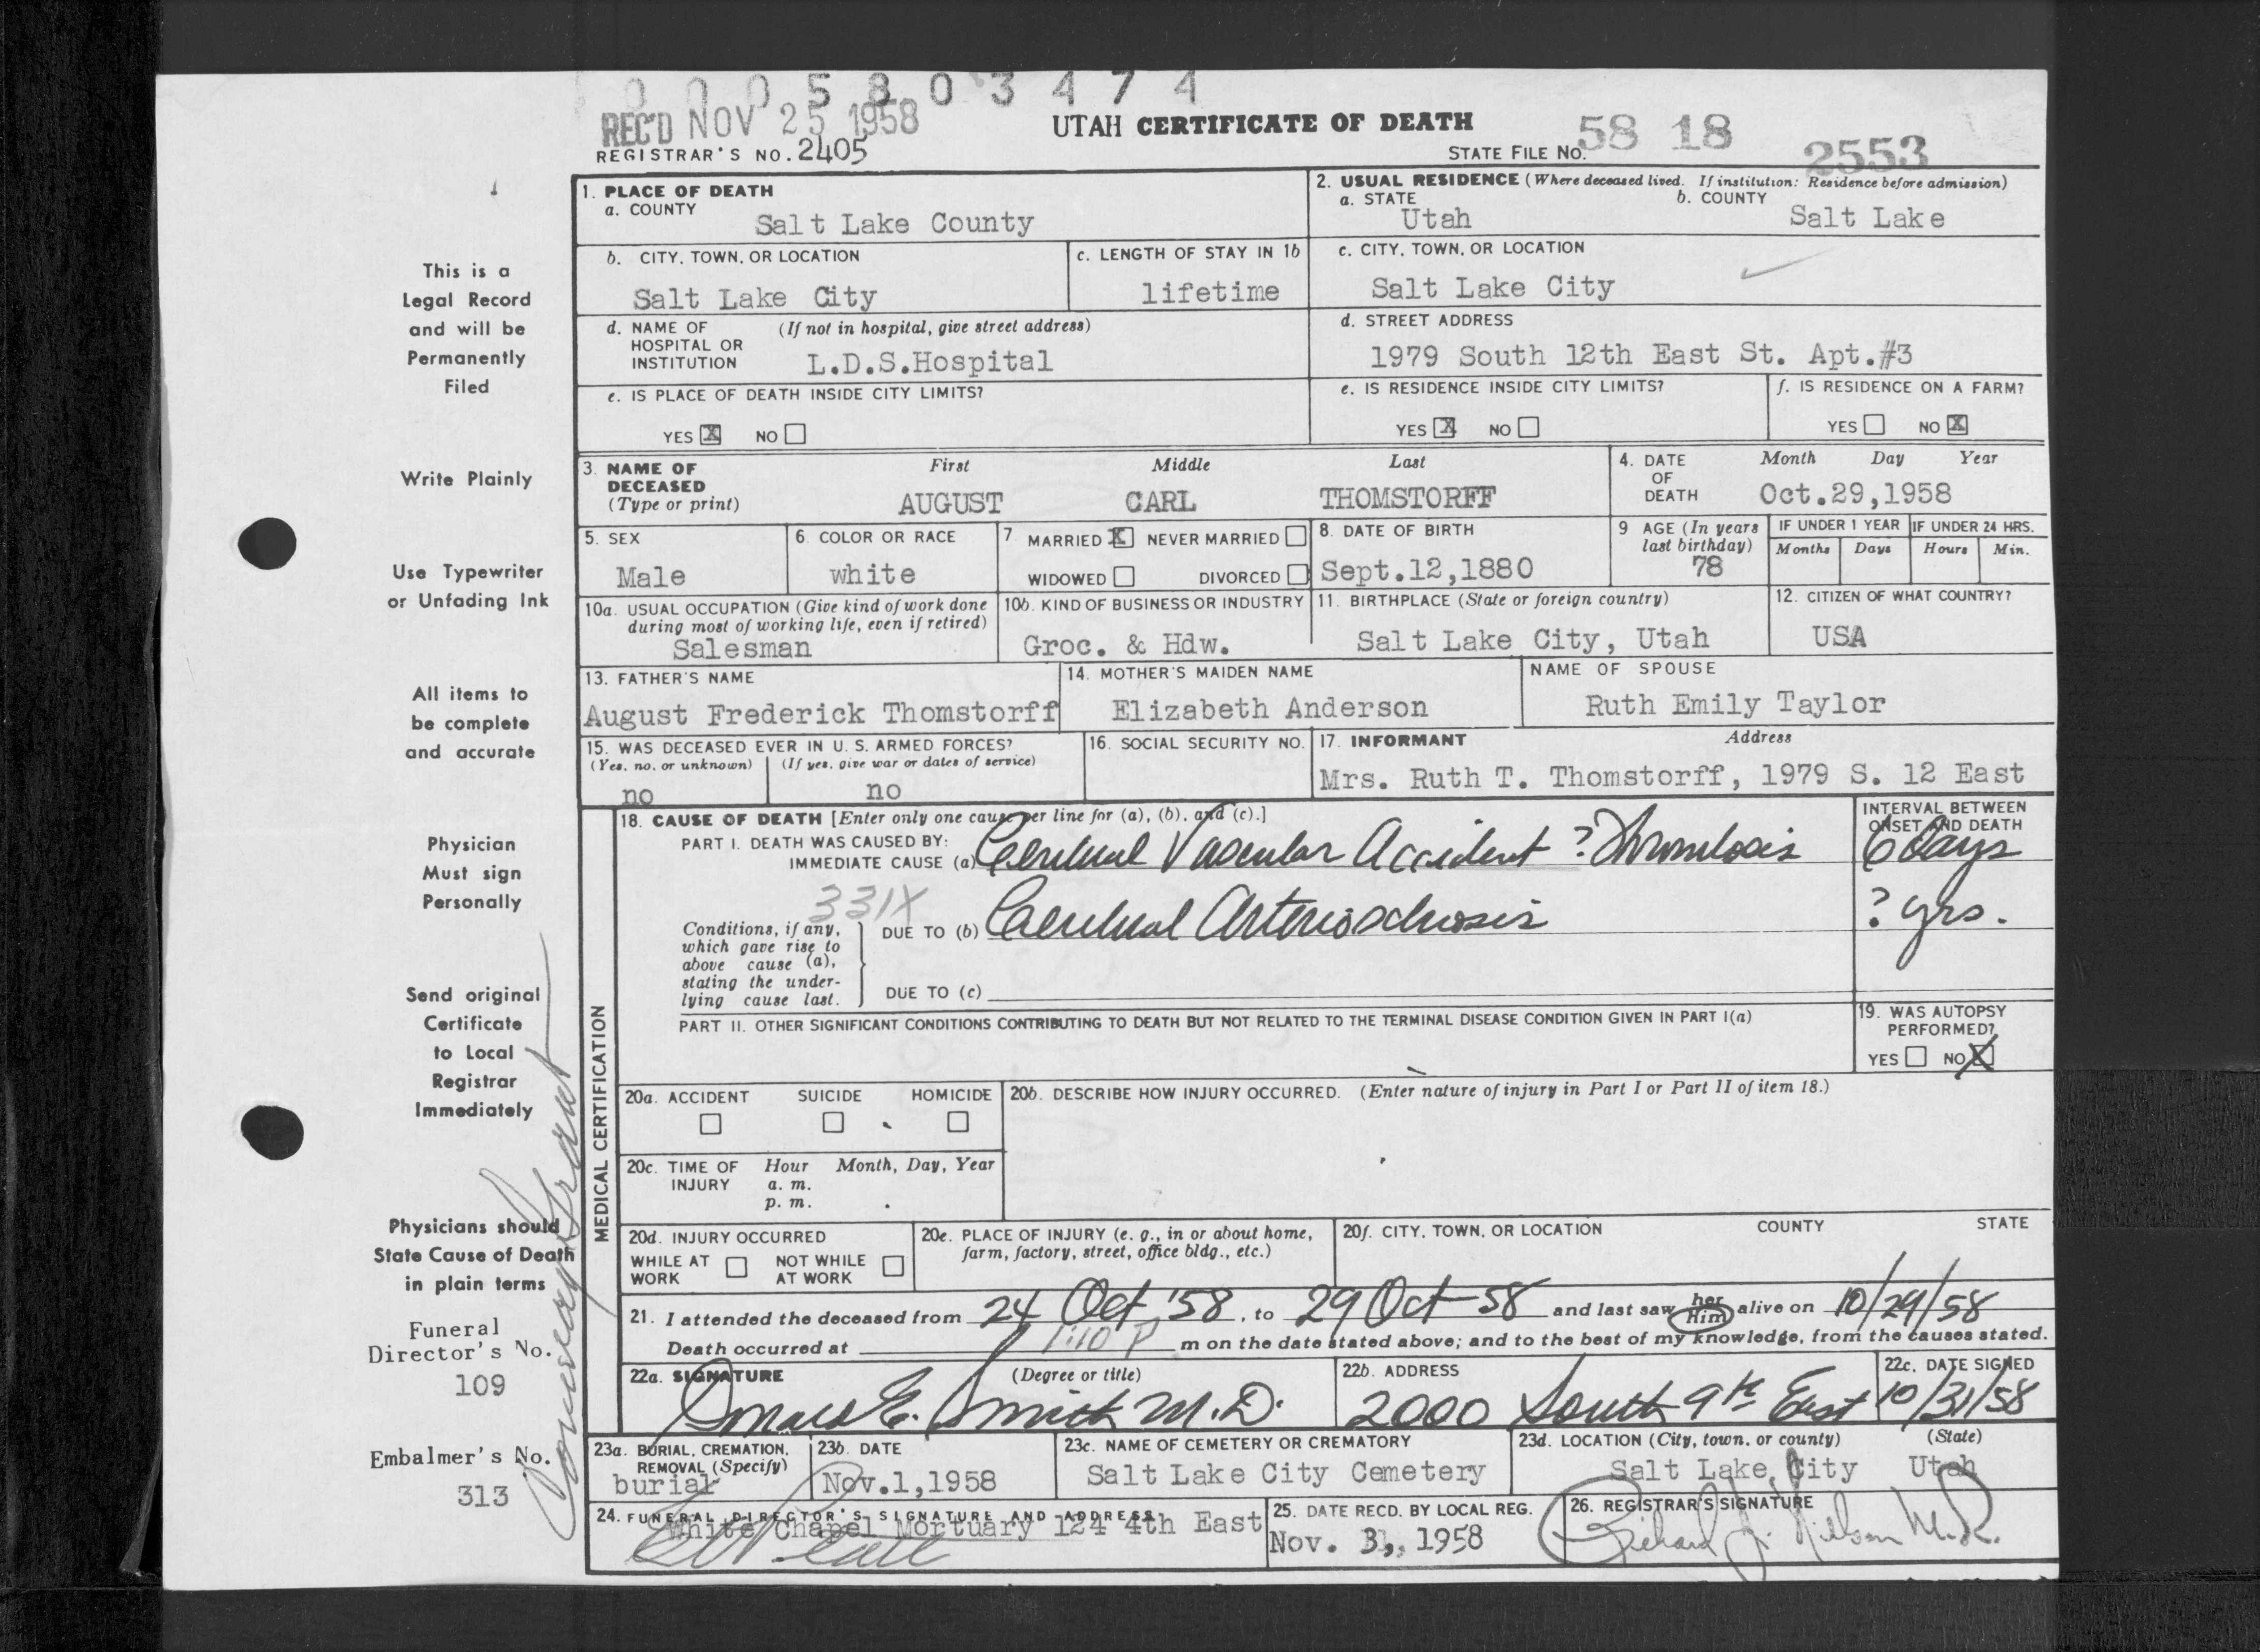 0 0 0 5 8 0 3 4 7 4
REC'D NOV 25 1958
UTAH CERTIFICATE OF DEATH
58 18 2553
REGISTRAR'S NO. 2405
STATE FILE NO.
1. PLACE OF DEATH
a. COUNTY
Salt Lake County
2. USUAL RESIDENCE (Where deceased lived. If institution: Residence before admission)
a. STATE
Utah
b. COUNTY
Salt Lake
b. CITY, TOWN, OR LOCATION
Salt Lake City
c. LENGTH OF STAY IN 1b
lifetime
c. CITY, TOWN, OR LOCATION
Salt Lake City
d. NAME OF HOSPITAL OR INSTITUTION
(If not in hospital, give street address)
L.D.S.Hospital
d. STREET ADDRESS
1979 South 12th East St. Apt.#3
e. IS PLACE OF DEATH INSIDE CITY LIMITS?
YES X NO
e. IS RESIDENCE INSIDE CITY LIMITS?
YES X NO
f. IS RESIDENCE ON A FARM?
YES NO X
3. NAME OF DECEASED
(Type or print)
First Middle Last
AUGUST CARL THOMSTORFF
4. DATE OF DEATH
Month Day Year
Oct.29,1958
5. SEX
Male
6. COLOR OR RACE
white
7. MARRIED X NEVER MARRIED
WIDOWED DIVORCED
8. DATE OF BIRTH
Sept.12,1880
9 AGE (In years last birthday)
78
IF UNDER 1 YEAR
Months Days
IF UNDER 24 HRS.
Hours Min.
10a. USUAL OCCUPATION (Give kind of work done
during most of working life, even if retired)
Salesman
10b. KIND OF BUSINESS OR INDUSTRY
Groc. & Hdw.
11. BIRTHPLACE (State or foreign country)
Salt Lake City, Utah
12. CITIZEN OF WHAT COUNTRY?
USA
13. FATHER'S NAME
August Frederick Thomstorff
14. MOTHER'S MAIDEN NAME
Elizabeth Anderson
NAME OF SPOUSE
Ruth Emily Taylor
15. WAS DECEASED EVER IN U. S. ARMED FORCES?
(Yes, no, or unknown) (If yes, give war or dates of service)
no no
16. SOCIAL SECURITY NO.
17. INFORMANT Address
Mrs. Ruth T. Thomstorff, 1979 S. 12 East
MEDICAL CERTIFICATION
18. CAUSE OF DEATH [Enter only one cause per line for (a), (b), and (c).]
PART I. DEATH WAS CAUSED BY:
IMMEDIATE CAUSE (a) Cerebral Vascular Accident ? Thrombosis
INTERVAL BETWEEN ONSET AND DEATH
6 days
331X
Conditions, if any,
which gave rise to
above cause (a),
stating the under-
lying cause last.
DUE TO (b) Cerebral Arteriosclerosis
? yrs.
DUE TO (c)
PART II. OTHER SIGNIFICANT CONDITIONS CONTRIBUTING TO DEATH BUT NOT RELATED TO THE TERMINAL DISEASE CONDITION GIVEN IN PART I(a)
19. WAS AUTOPSY PERFORMED?
YES NO X
20a. ACCIDENT SUICIDE HOMICIDE
20b. DESCRIBE HOW INJURY OCCURRED. (Enter nature of injury in Part I or Part II of item 18.)
20c. TIME OF INJURY
Hour Month, Day, Year
a. m.
p. m.
20d. INJURY OCCURRED
WHILE AT WORK NOT WHILE AT WORK
20e. PLACE OF INJURY (e. g., in or about home,
farm, factory, street, office bldg., etc.)
20f. CITY, TOWN, OR LOCATION COUNTY STATE
21. I attended the deceased from 24 Oct '58, to 29 Oct 58 and last saw her him alive on 10/29/58
Death occurred at 1:10 P m on the date stated above; and to the best of my knowledge, from the causes stated.
22a. SIGNATURE (Degree or title)
E. Smith M.D.
22b. ADDRESS
2000 South 9th East
22c. DATE SIGNED
10/31/58
23a. BURIAL, CREMATION, REMOVAL (Specify)
burial
23b. DATE
Nov.1,1958
23c. NAME OF CEMETERY OR CREMATORY
Salt Lake City Cemetery
23d. LOCATION (City, town, or county) (State)
Salt Lake City Utah
24. FUNERAL DIRECTOR'S SIGNATURE AND ADDRESS
White Chapel Mortuary 124 4th East
25. DATE RECD. BY LOCAL REG.
Nov. 3, 1958
26. REGISTRAR'S SIGNATURE
Richard Nilson
This is a
Legal Record
and will be
Permanently
Filed
Write Plainly
Use Typewriter
or Unfading Ink
All items to
be complete
and accurate
Physician
Must sign
Personally
Send original
Certificate
to Local
Registrar
Immediately
Physicians should
State Cause of Death
in plain terms
Funeral
Director's No.
109
Embalmer's No.
313